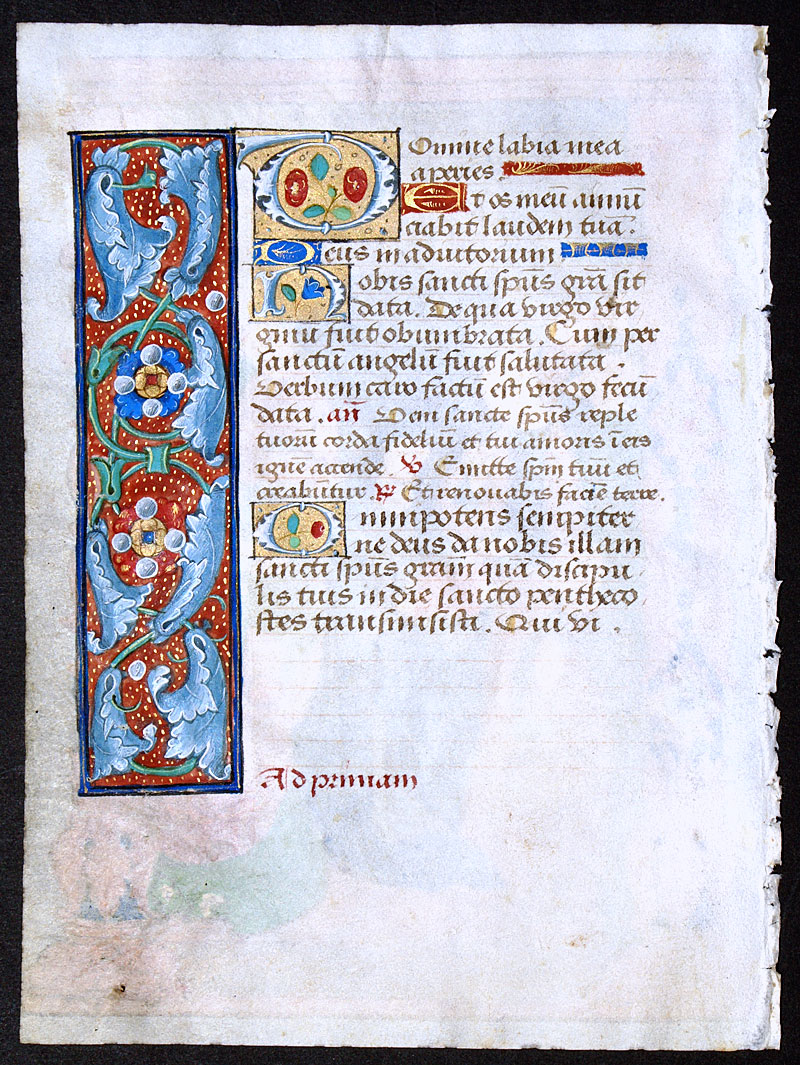 Domine labia mea
aperies.
Et os meū annū
ciabit laudem tuā.
Deus in adiutorium
Nobis sancti spūs grā sit
data. De qua virgo vir
ginū fuit obumbrata. Cum per
sanctū angelū fuit salutata.
Verbum caro factū est virgo fecū
data. añ Veni sancte spūs reple
tuorū corda fidelium et tui amoris ī eis
ignē accende. V Emitte spm̄ tuū et
creabūtur. R Et renovabis faciē terre.
Omnipotens sempiter
ne deus da nobis illam
sancti spūs gram̄ quā discipu
lis tuis in die sancto pentheco
stes transmisisti. Qui vi.
Ad primam